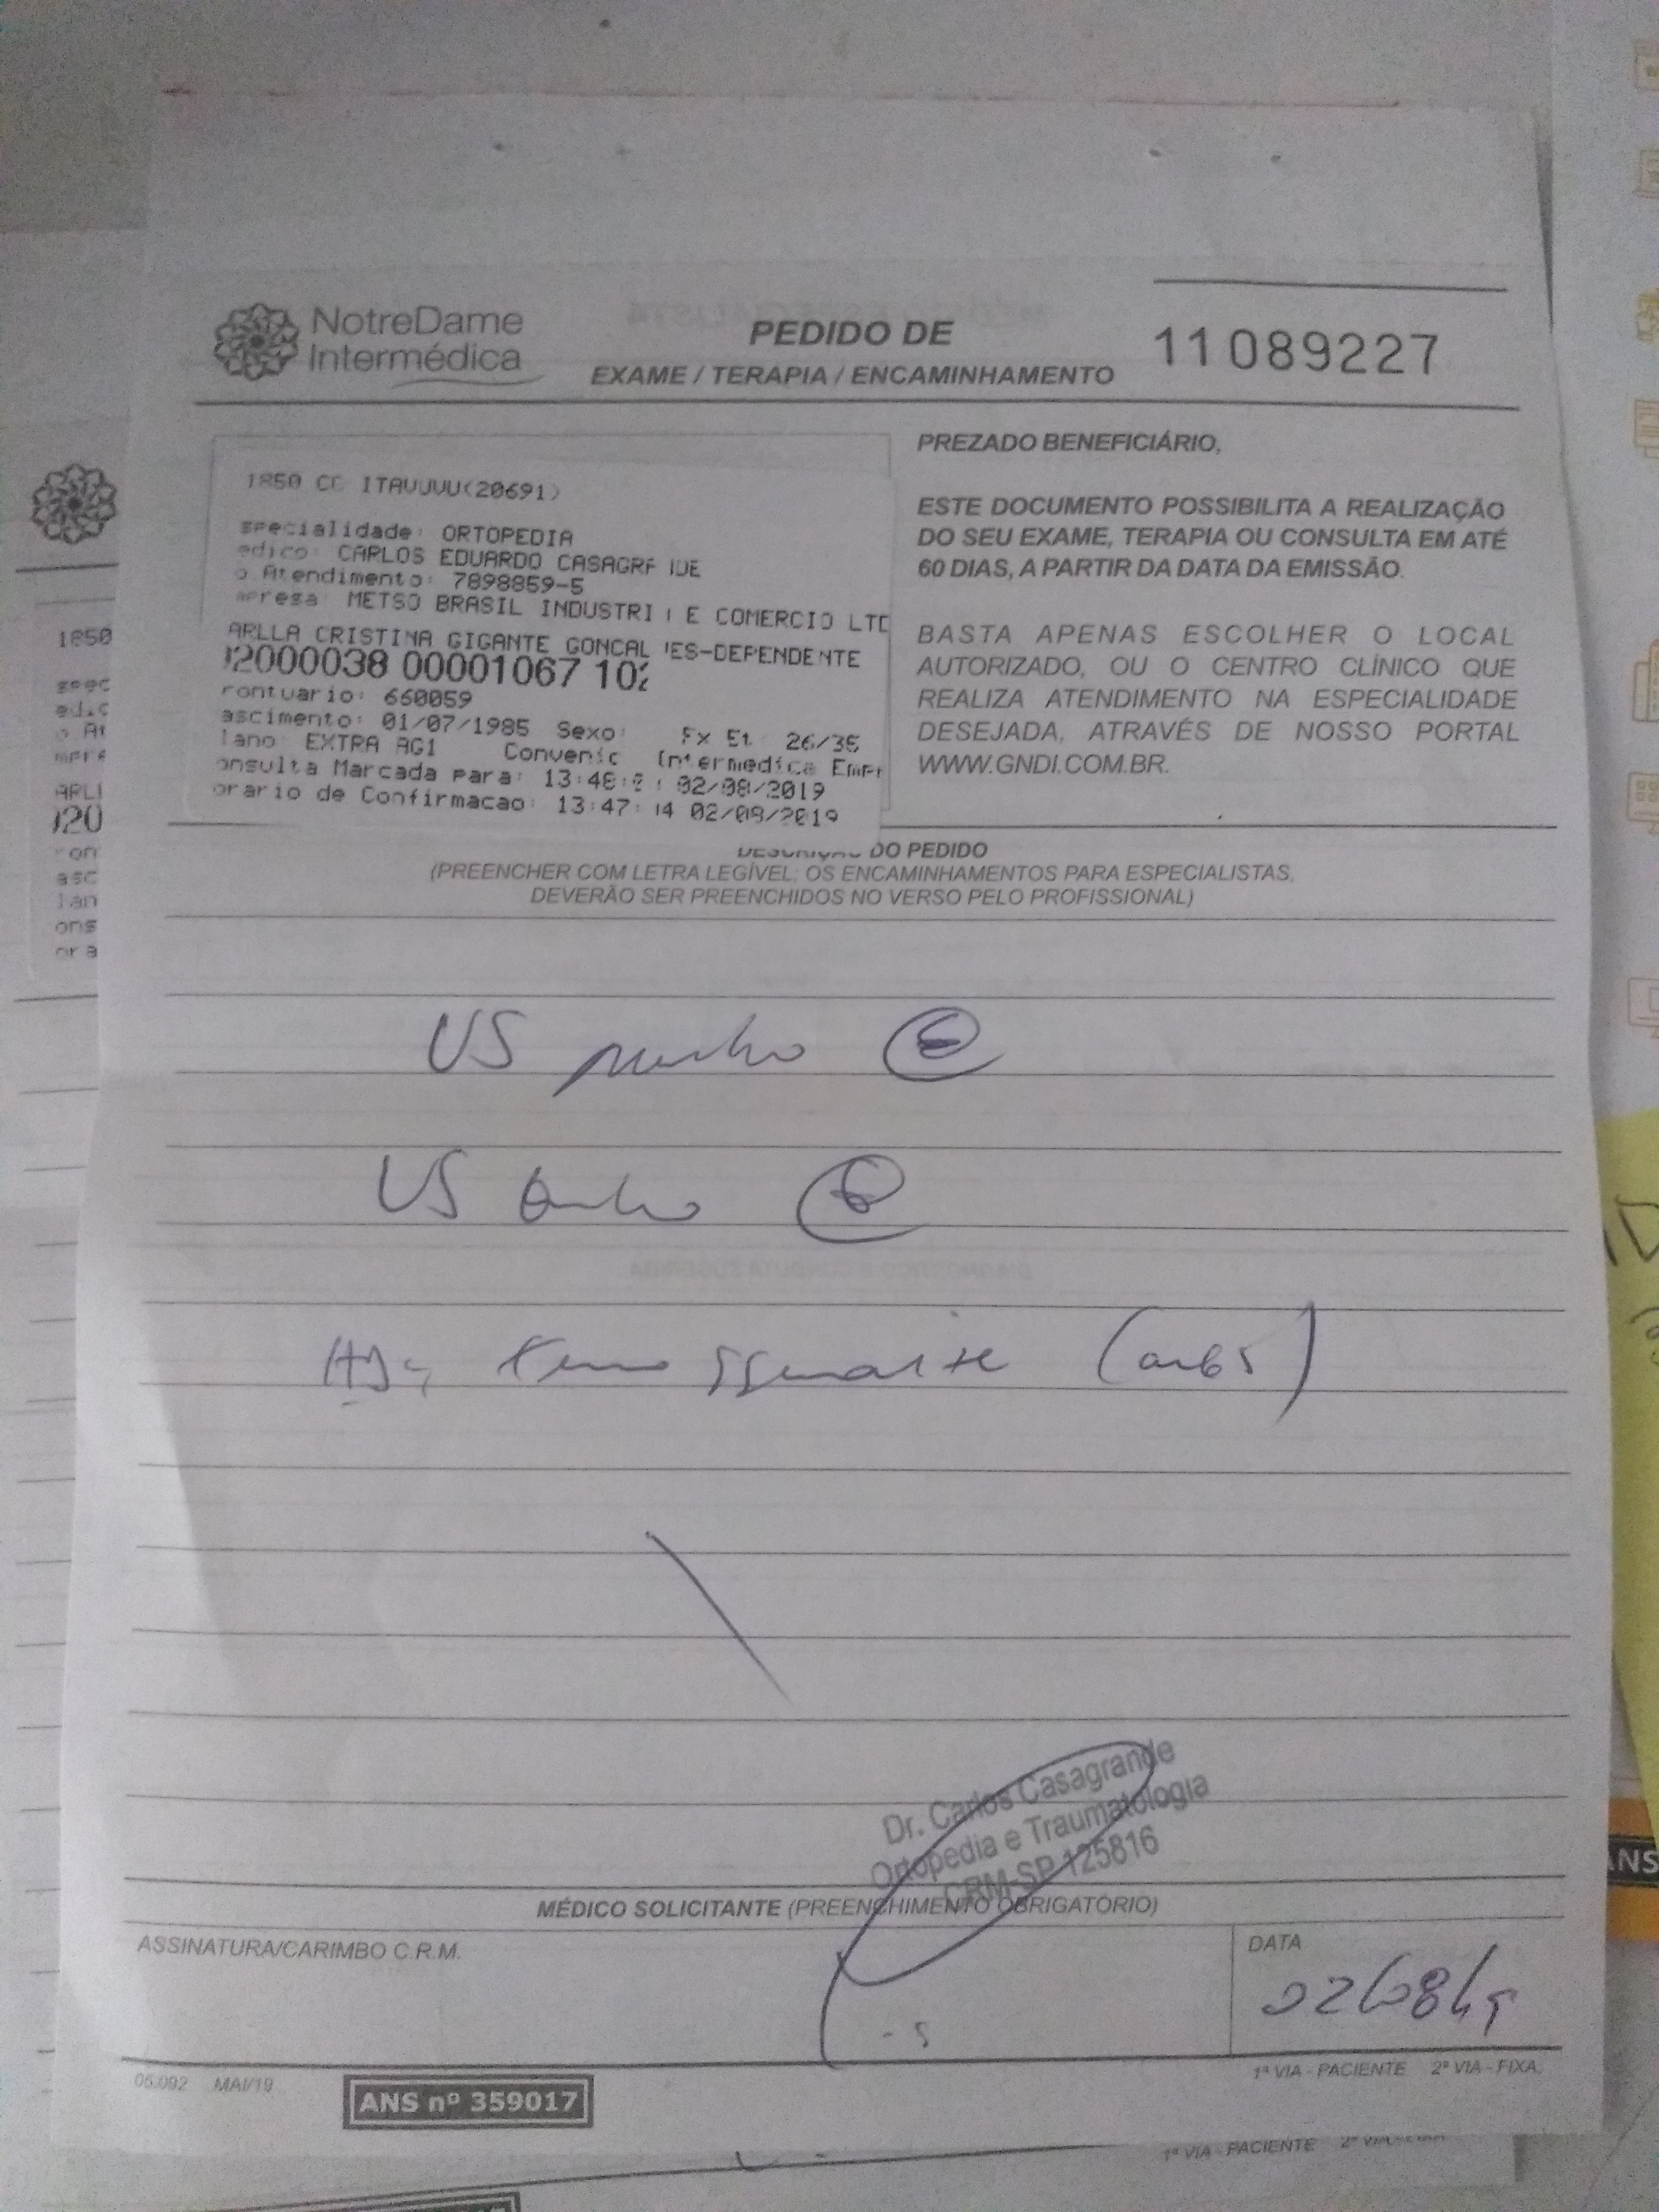 NotreDame
Intermédica
PEDIDO DE
EXAME / TERAPIA / ENCAMINHAMENTO
11089227
1850 CC ITAVUVU(20691)
specialidade: ORTOPEDIA
edico: CARLOS EDUARDO CASAGR
o Atendimento: 7898859-5
mpresa: METSO BRASIL INDUSTRI E COMERCIO LTD
ARLLA CRISTINA GIGANTE GONCAL ES-DEPENDENTE
2000038 00001067 102
rontuario: 660059
ascimento: 01/07/1985 Sexo: Fx Et 26/35
lano EXTRA AG1 Convenic Intermedica Empr
onsulta Marcada para: 13:48: 02/08/2019
orario de Confirmacao: 13:47: 14 02/08/2019
PREZADO BENEFICIÁRIO,
ESTE DOCUMENTO POSSIBILITA A REALIZAÇÃO
DO SEU EXAME, TERAPIA OU CONSULTA EM ATÉ
60 DIAS, A PARTIR DA DATA DA EMISSÃO.
BASTA APENAS ESCOLHER O LOCAL
AUTORIZADO, OU O CENTRO CLÍNICO QUE
REALIZA ATENDIMENTO NA ESPECIALIDADE
DESEJADA, ATRAVÉS DE NOSSO PORTAL
WWW.GNDI.COM.BR.
DESCRIÇÃO DO PEDIDO
(PREENCHER COM LETRA LEGÍVEL: OS ENCAMINHAMENTOS PARA ESPECIALISTAS,
DEVERÃO SER PREENCHIDOS NO VERSO PELO PROFISSIONAL)
US punho E
US E
Dr. Carlos Casagrande
Ortopedia e Traumatologia
CRM-SP 125816
MÉDICO SOLICITANTE (PREENCHIMENTO OBRIGATÓRIO)
ASSINATURA/CARIMBO C.R.M.
DATA
02/08/19
1ª VIA - PACIENTE 2ª VIA - FIXA.
05.092 MAI/19
ANS nº 359017
1ª VIA - PACIENTE